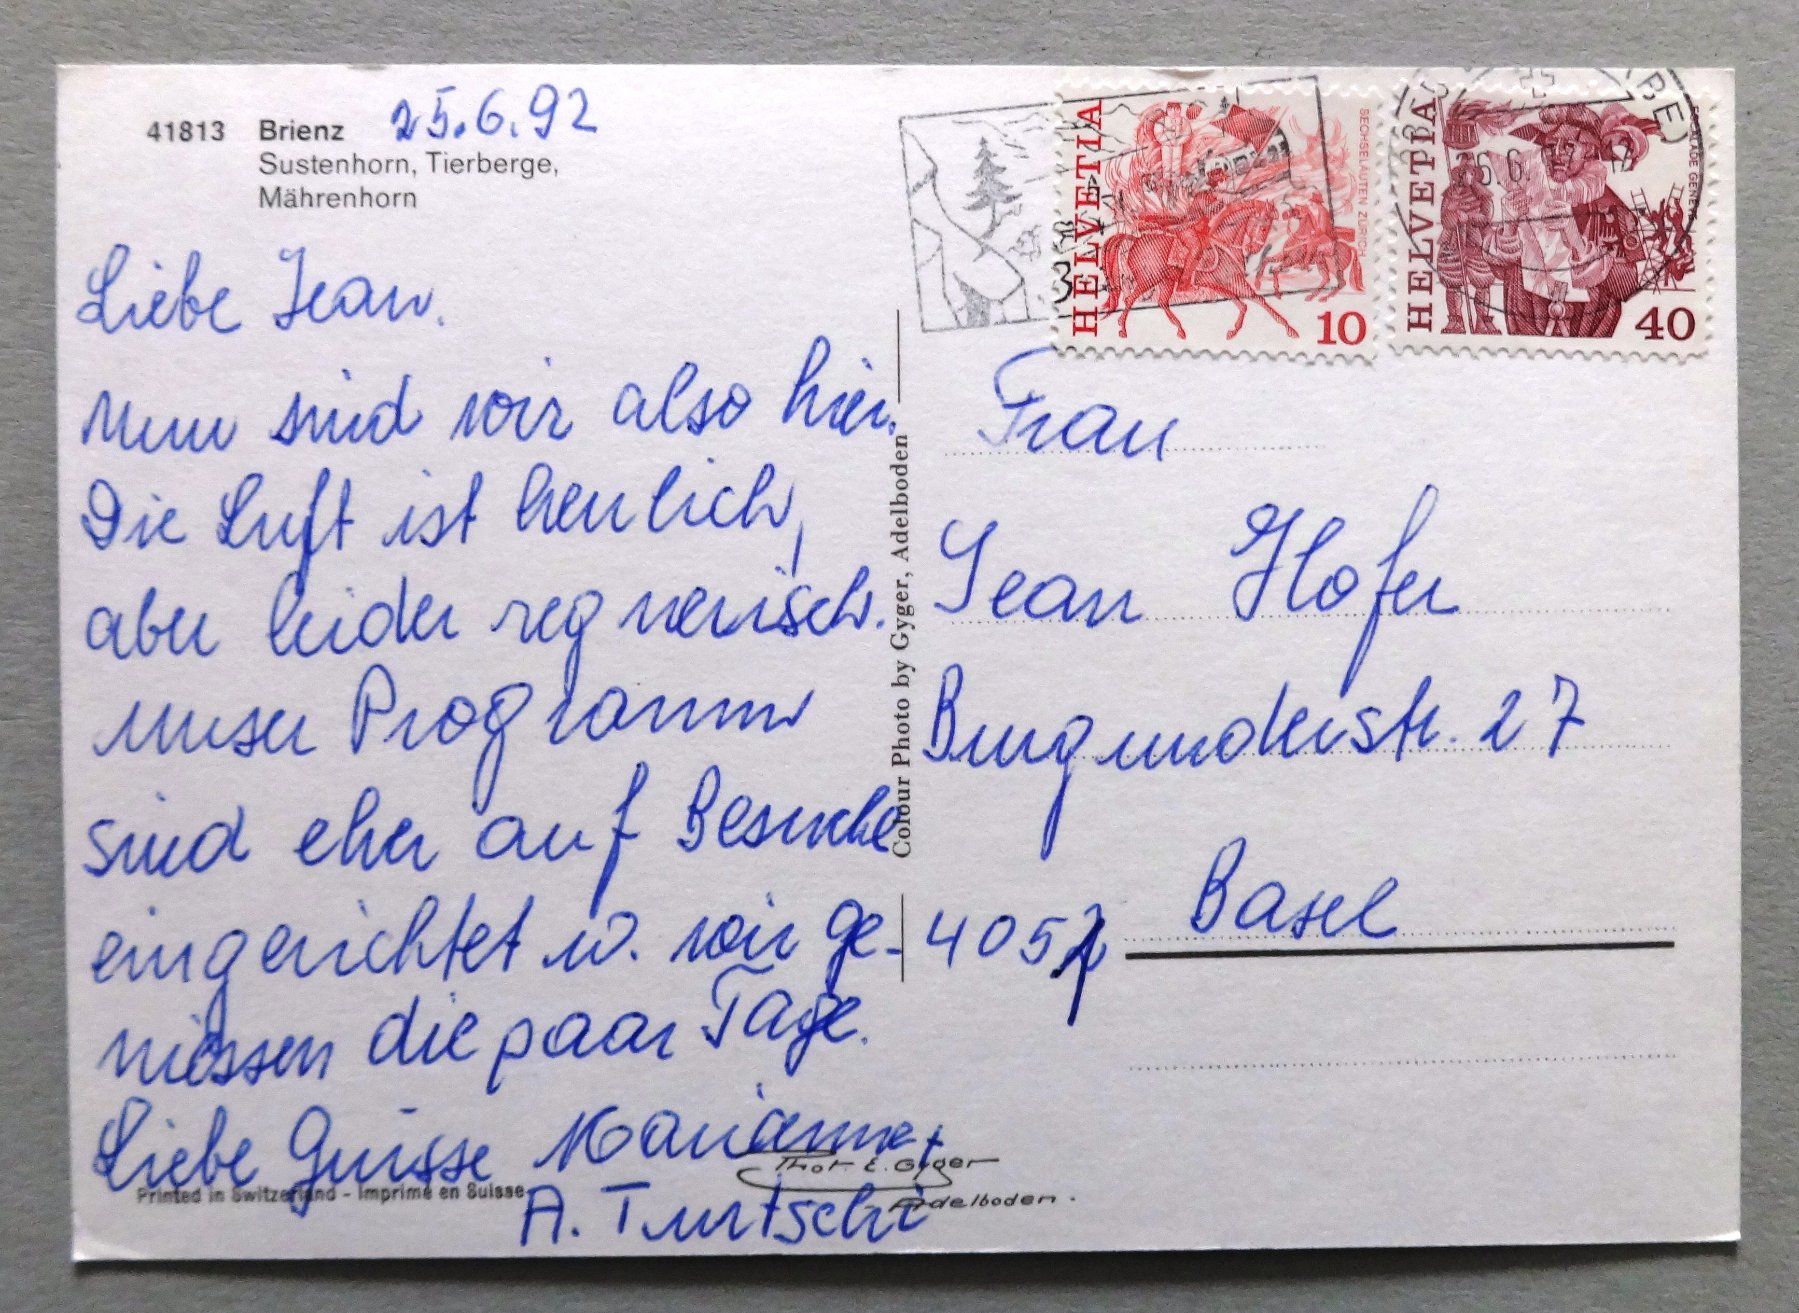 41813 Brienz 25.6.92
Sustenhorn, Tierberge,
Mährenhorn
Liebe Jean.
Nun sind wir also hier.
Die Luft ist herrlich,
aber leider regnerisch.
Unser Programm
sind eher auf Besuche
eingerichtet u. wir ge-
niessen die paar Tage.
Liebe Grüsse Marianne +
A. Turtschi
Printed in Switzerland - Imprimé en Suisse
Colour Photo by Gyger, Adelboden
Phot. E. Gyger
Adelboden.
HELVETIA
SECHSELÄUTEN ZÜRICH
10
HELVETIA
ESCALADE GENÈVE
40
Frau
Jean Hofer
Burgunderstr. 27
Basel